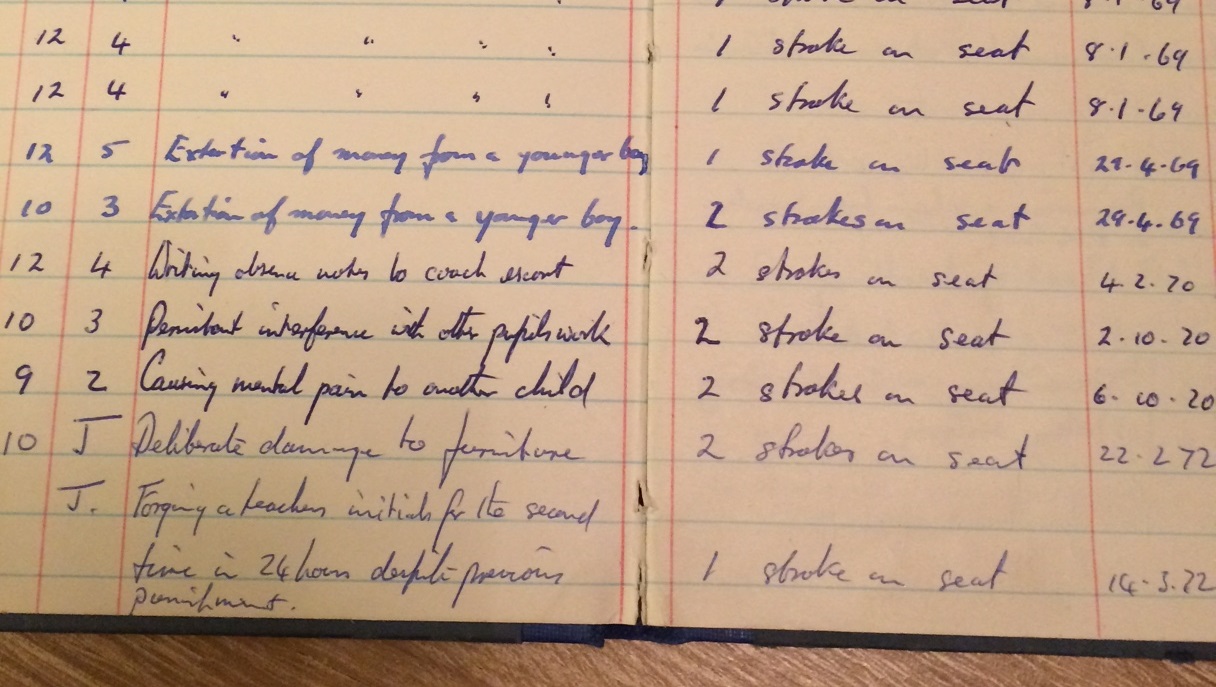 stroke on seat 8.1.69
12 4 " " " " 1 stroke on seat 8.1.69
12 4 " " " " 1 stroke on seat 8.1.69
12 5 Extortion of money from a younger boy 1 stroke on seat 29.4.69
10 3 Extortion of money from a younger boy. 2 strokes on seat 29.4.69
12 4 Writing absence notes to coach escort 2 strokes on seat 4.2.70
10 3 Persistent interference with other pupils work 2 stroke on seat 2.10.70
9 2 Causing mental pain to another child 2 strokes on seat 6.10.70
10 J Deliberate damage to furniture 2 strokes on seat 22.2.72
J. Forging a teachers initials for the second
time in 24 hours despite previous 1 stroke on seat 14.3.72
punishment.